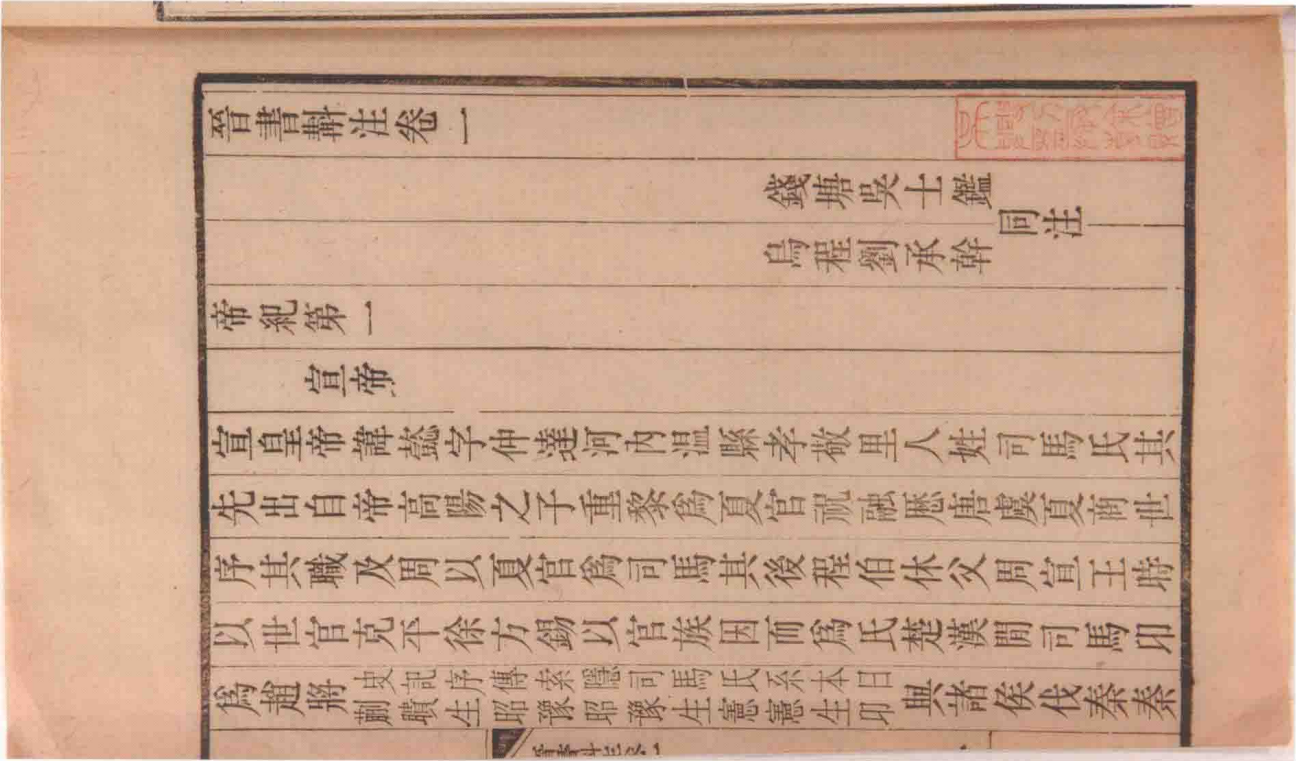 晉書斠注卷一
錢塘吳士鑑
烏程劉承幹
同注
帝紀第一
宣帝
宣皇帝諱懿字仲達河內温縣孝敬里人姓司馬氏其
先出自帝高陽之子重黎爲夏官祝融歷唐虞夏商世
序其職及周以夏官爲司馬其後程伯休父周宣王時
以世官克平徐方錫以官族因而爲氏楚漢閒司馬卬
爲趙將史記序傳索隱司馬氏系本曰蒯聵生昭豫昭豫生憲憲生卬與諸侯伐秦秦